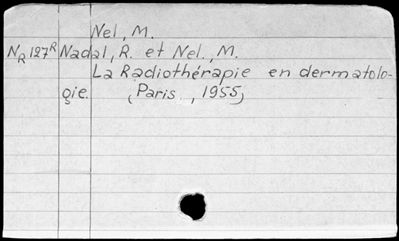 Nel, M.
N_R 127^R Nadal, R. et Nel., M.
La Radiothérapie en dermatolo-
gie. (Paris., 1955)